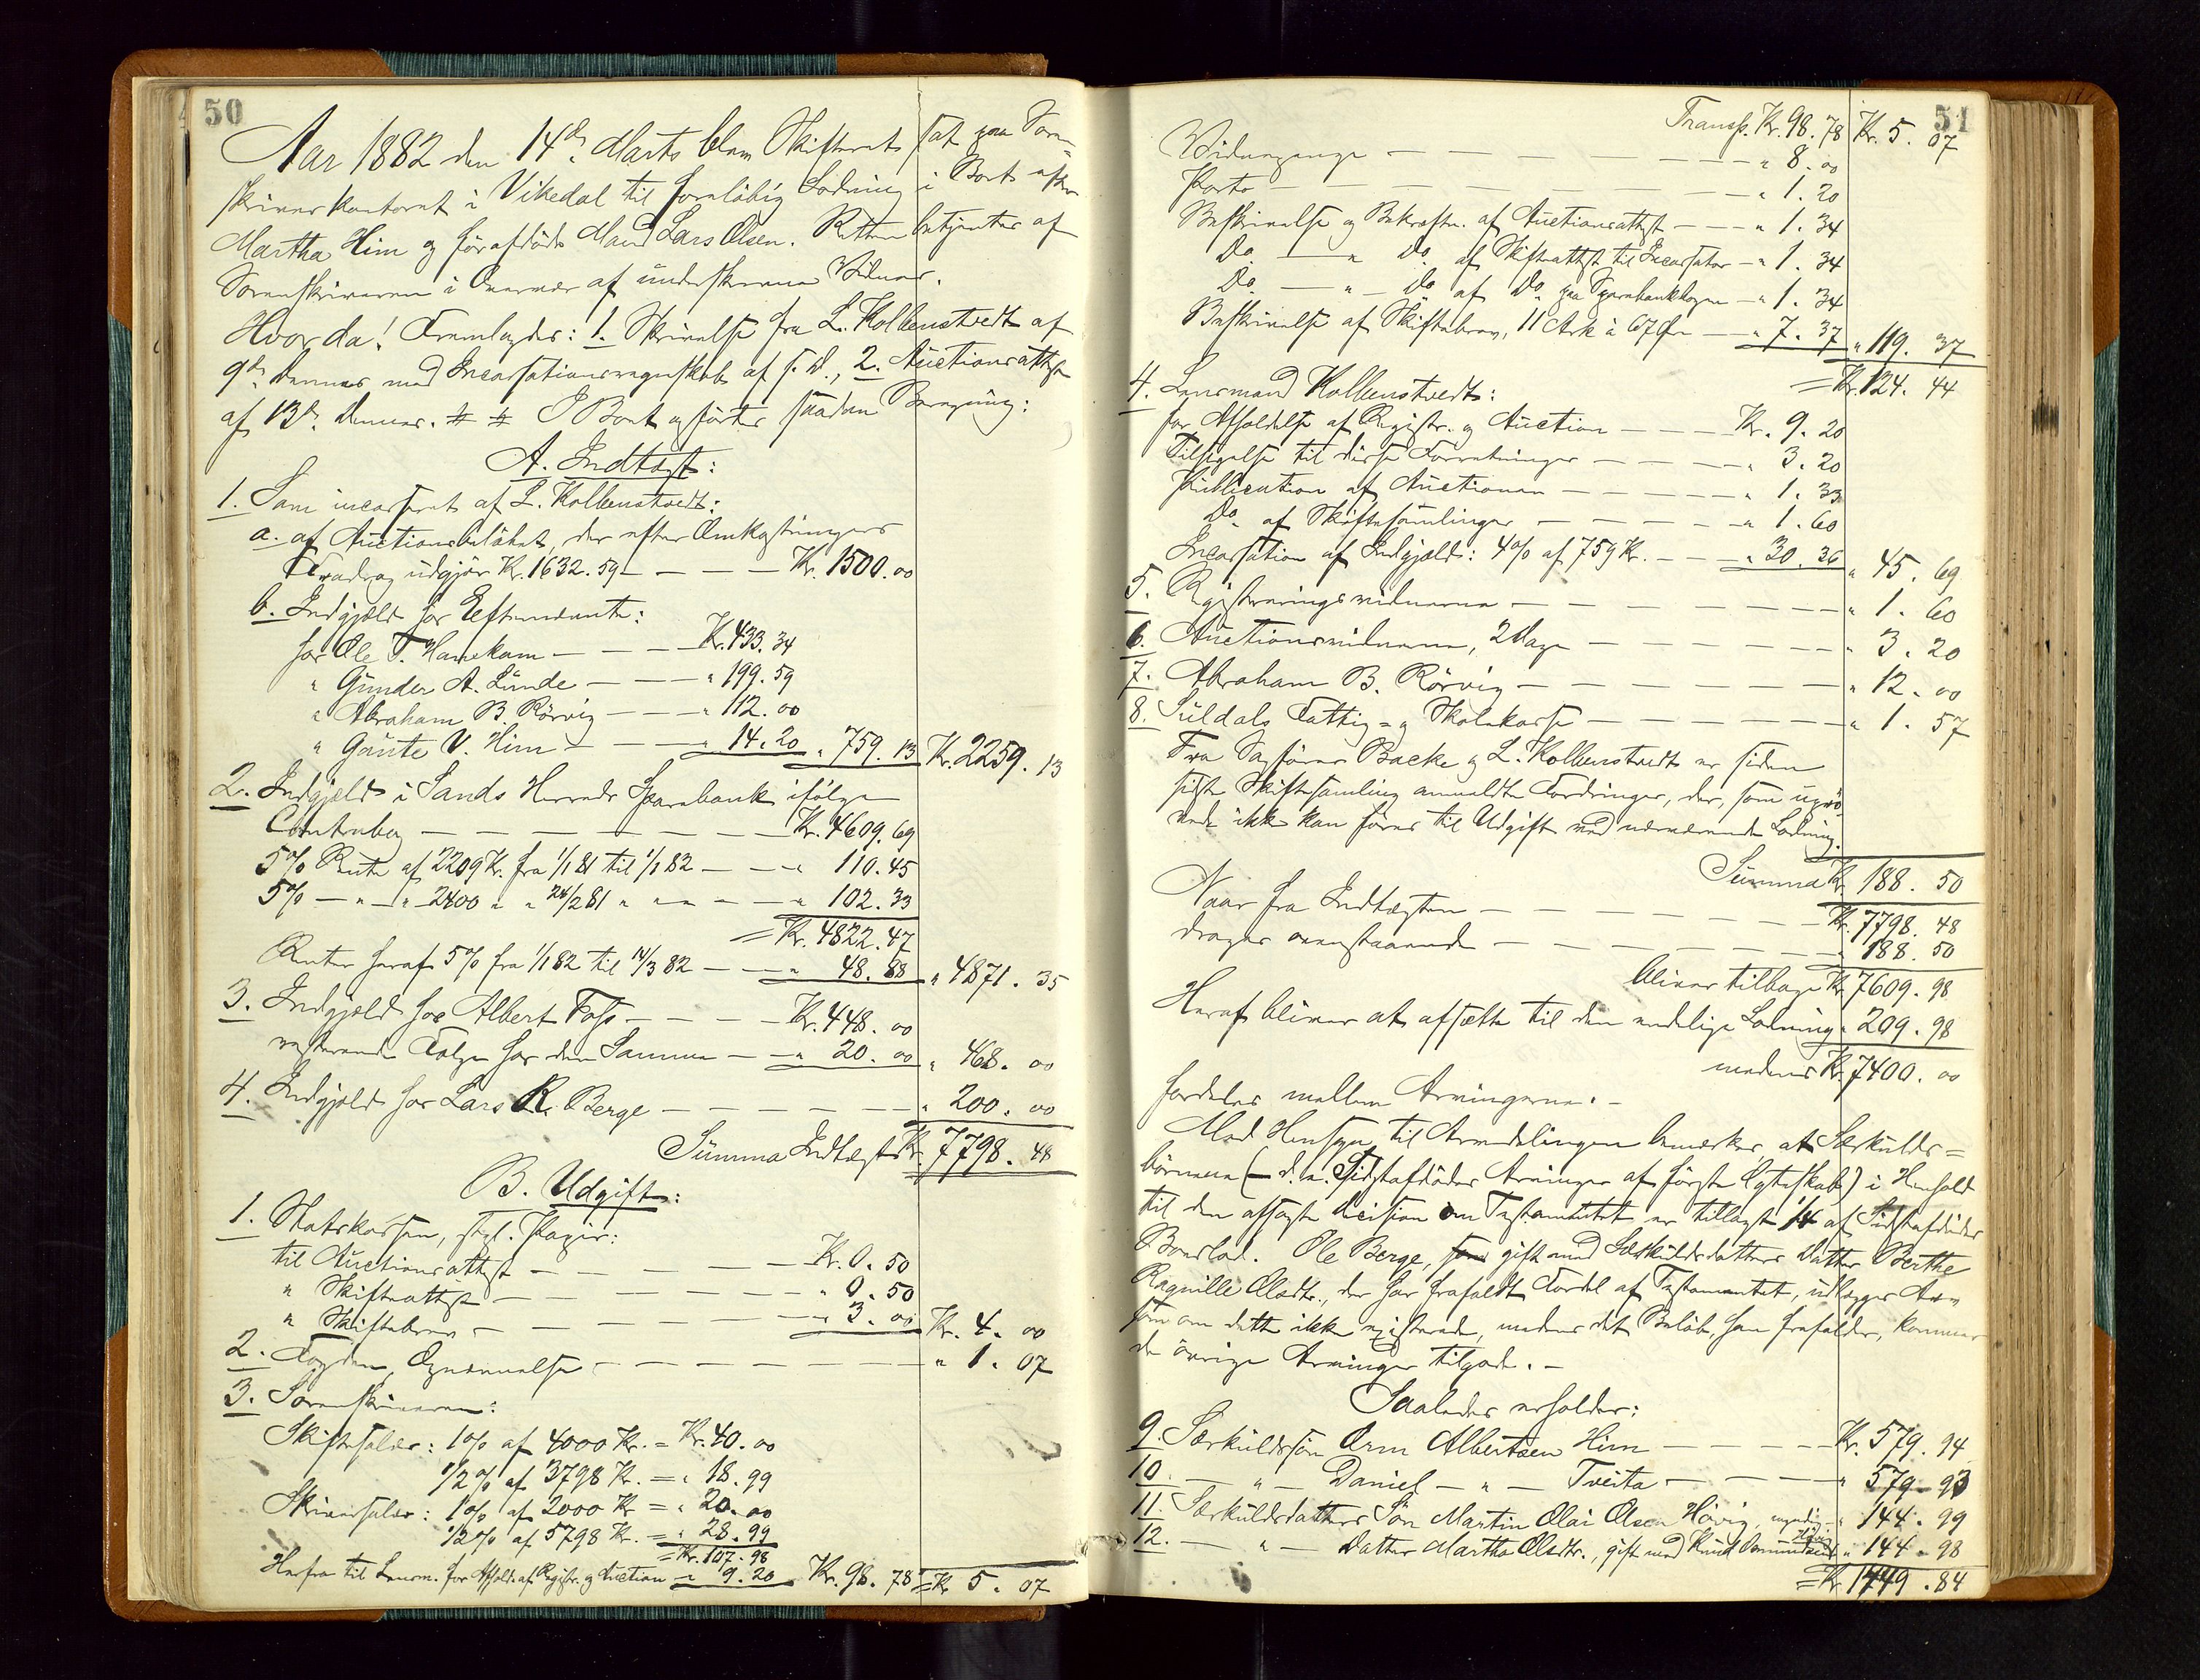 50
Aar 1882 den 14de Marts blev Skifteret sat paa Soren-
skriverkontoret i Vikedal til foreløbig Lodning i Boet efter
Martha Him og førafdøde Mand Lars Olsen. Retten betjentes af
Sorenskriveren i Overvær af underskrevne Vidner.
Hvorda! Fremlagdes: 1. Skrivelse fra L. Kolbenstvedt af
9de dennes med Incassationsregnskab af s. D., 2. Auctionsattest
af 13de dennes. # # I Boet opførtes saadan Beregning:
A. Indtægt:
1. Som incasseret af L. Kolbenstvedt:
a. af Auctionsbeløbet, der efter Omkostningers
Fradrag udgjør Kr. 1632.59 — — — Kr. 1500.00
b. Indgjæld hos Efternævnte:
hos Ole T. Hanekam — — — Kr. 433.34
" Gunder A. Lunde — — — " 199.59
" Abraham B. Rörvig — — — " 112.00
" Gaute V. Him — — — " 14.20 " 759.13 Kr. 2259.13
2. Indgjæld i Sands Herreds Sparebank ifølge
Contrabog — — — — — — Kr. 4609.69
5% Rente af 2209 Kr. fra 1/1 81 til 1/1 82 — — " 110.45
5% — " — " 2400 " " 24/2 81 " " — — " 102.33
= Kr. 4822.47
Renter heraf 5% fra 1/1 82 til 14/3 82 — — " 48.88 " 4871.35
3. Indgjæld hos Albert Foss — — — Kr. 448.00
resterende Følge hos den Samme — — " 20.00 " 468.00
4. Indgjæld hos Lars R. Berge — — — — — " 200.00
Summa Indtægt Kr. 7798.48
B. Udgift:
1. Statskassen, stpl. Papir:
til Auctionsattest — — — — Kr. 0.50
" Skifteattest — — — — " 0.50
" Skiftebrev — — — — " 3.00 Kr. 4.00
2. Fogden, Opnævnelse — — — — — " 1.07
3. Sorenskriveren:
Skiftesalær: 1% af 4000 Kr. = Kr. 40.00
1/2% af 3798 Kr. = " 18.99
Skriversalær: 1% af 2000 Kr = " 20.00
1/2% af 5798 Kr. = " 28.99
= Kr. 107.98
Herfra til Lensm. for Afhold. af Registr. og Auction — " 9.20 Kr. 98.78 = Kr 5.07
51
Transp. Kr. 98.78 Kr. 5.07
Vidnepenge — — — — — " 8.00
Porto — — — — — — " 1.20
Beskrivelse og Bekræft. af Auctionsattest — — — " 1.34
Do. — " Do. af Skifteattest til Incassator — " 1.34
Do. — " — Do af Do. paa Sparebankbogen — " 1.34
Beskrivelse af Skiftebrev, 11 Ark à 67 Øre — " 7.37 " 119.37
= Kr. 124.44
4. Lensmand Kolbenstvedt:
for Afholdelse af Registr. og Auction — — — Kr. 9.20
Tilsigelse til disse Forretninger — — — — " 3.20
Publication af Auctionen — — — — — " 1.33
Do. af Skiftesamlinger — — — — — " 1.60
Incassation af Indgjæld: 4% af 759 Kr. — — — " 30.36 " 45.69
5. Registreringsvidnerne — — — — — — " 1.60
6. Auctionsvidnerne, 2 Dage — — — — — " 3.20
7. Abraham B. Rörvig — — — — — — " 12.00
8. Suldals Fattig- og Skolekasse — — — — — " 1.57
Fra Sagfører Backe og L. Kolbenstvedt er siden
sidste Skiftesamling anmeldt Fordringer, der, som uprø-
vede ikke kan føres til Udgift ved nærværende Lodning.
Summa Kr 188.50
Naar fra Indtægten — — — — — Kr. 7798.48
drages ovenstaaende — — — — — " 188.50
bliver tilbage Kr. 7609.98
Heraf bliver at afsætte til den endelige Lodning " 209.98
medens Kr. 7400.00
fordeles mellem Arvingerne. —
Med Hensyn til Arvedelingen bemærkes, at Særkulds-
børnene (— d. e. Sidstafdødes Arvinger af første Ægteskab) i Henhold
til den afsagte Decision om Testamentet er tillagt 1/4 af Sidstafdødes
Boeslod. Ole Berge, gift med Særkuldsdatters Datter Berthe
Ragnille Olsdtr., der har frafaldt Fordel af Testamentet, udlægges Arv
som om dette ikke existerede, medens det Beløb, han frafalder, kommer
de øvrige Arvinger tilgode. —
Saaledes erholder:
9. Særkuldssøn Orm Albertsen Him — — — — Kr. 579.94
10. — " — Daniel — " — Tveita — — — " 579.93
11. Særkuldsdatters Søn Martin Olai Olsen Hövig, umyndig — " 144.99
12. — " — Datter Martha Olsdtr., gift med Knud Omundsen Hövig " 144.98
= Kr. 1449.84